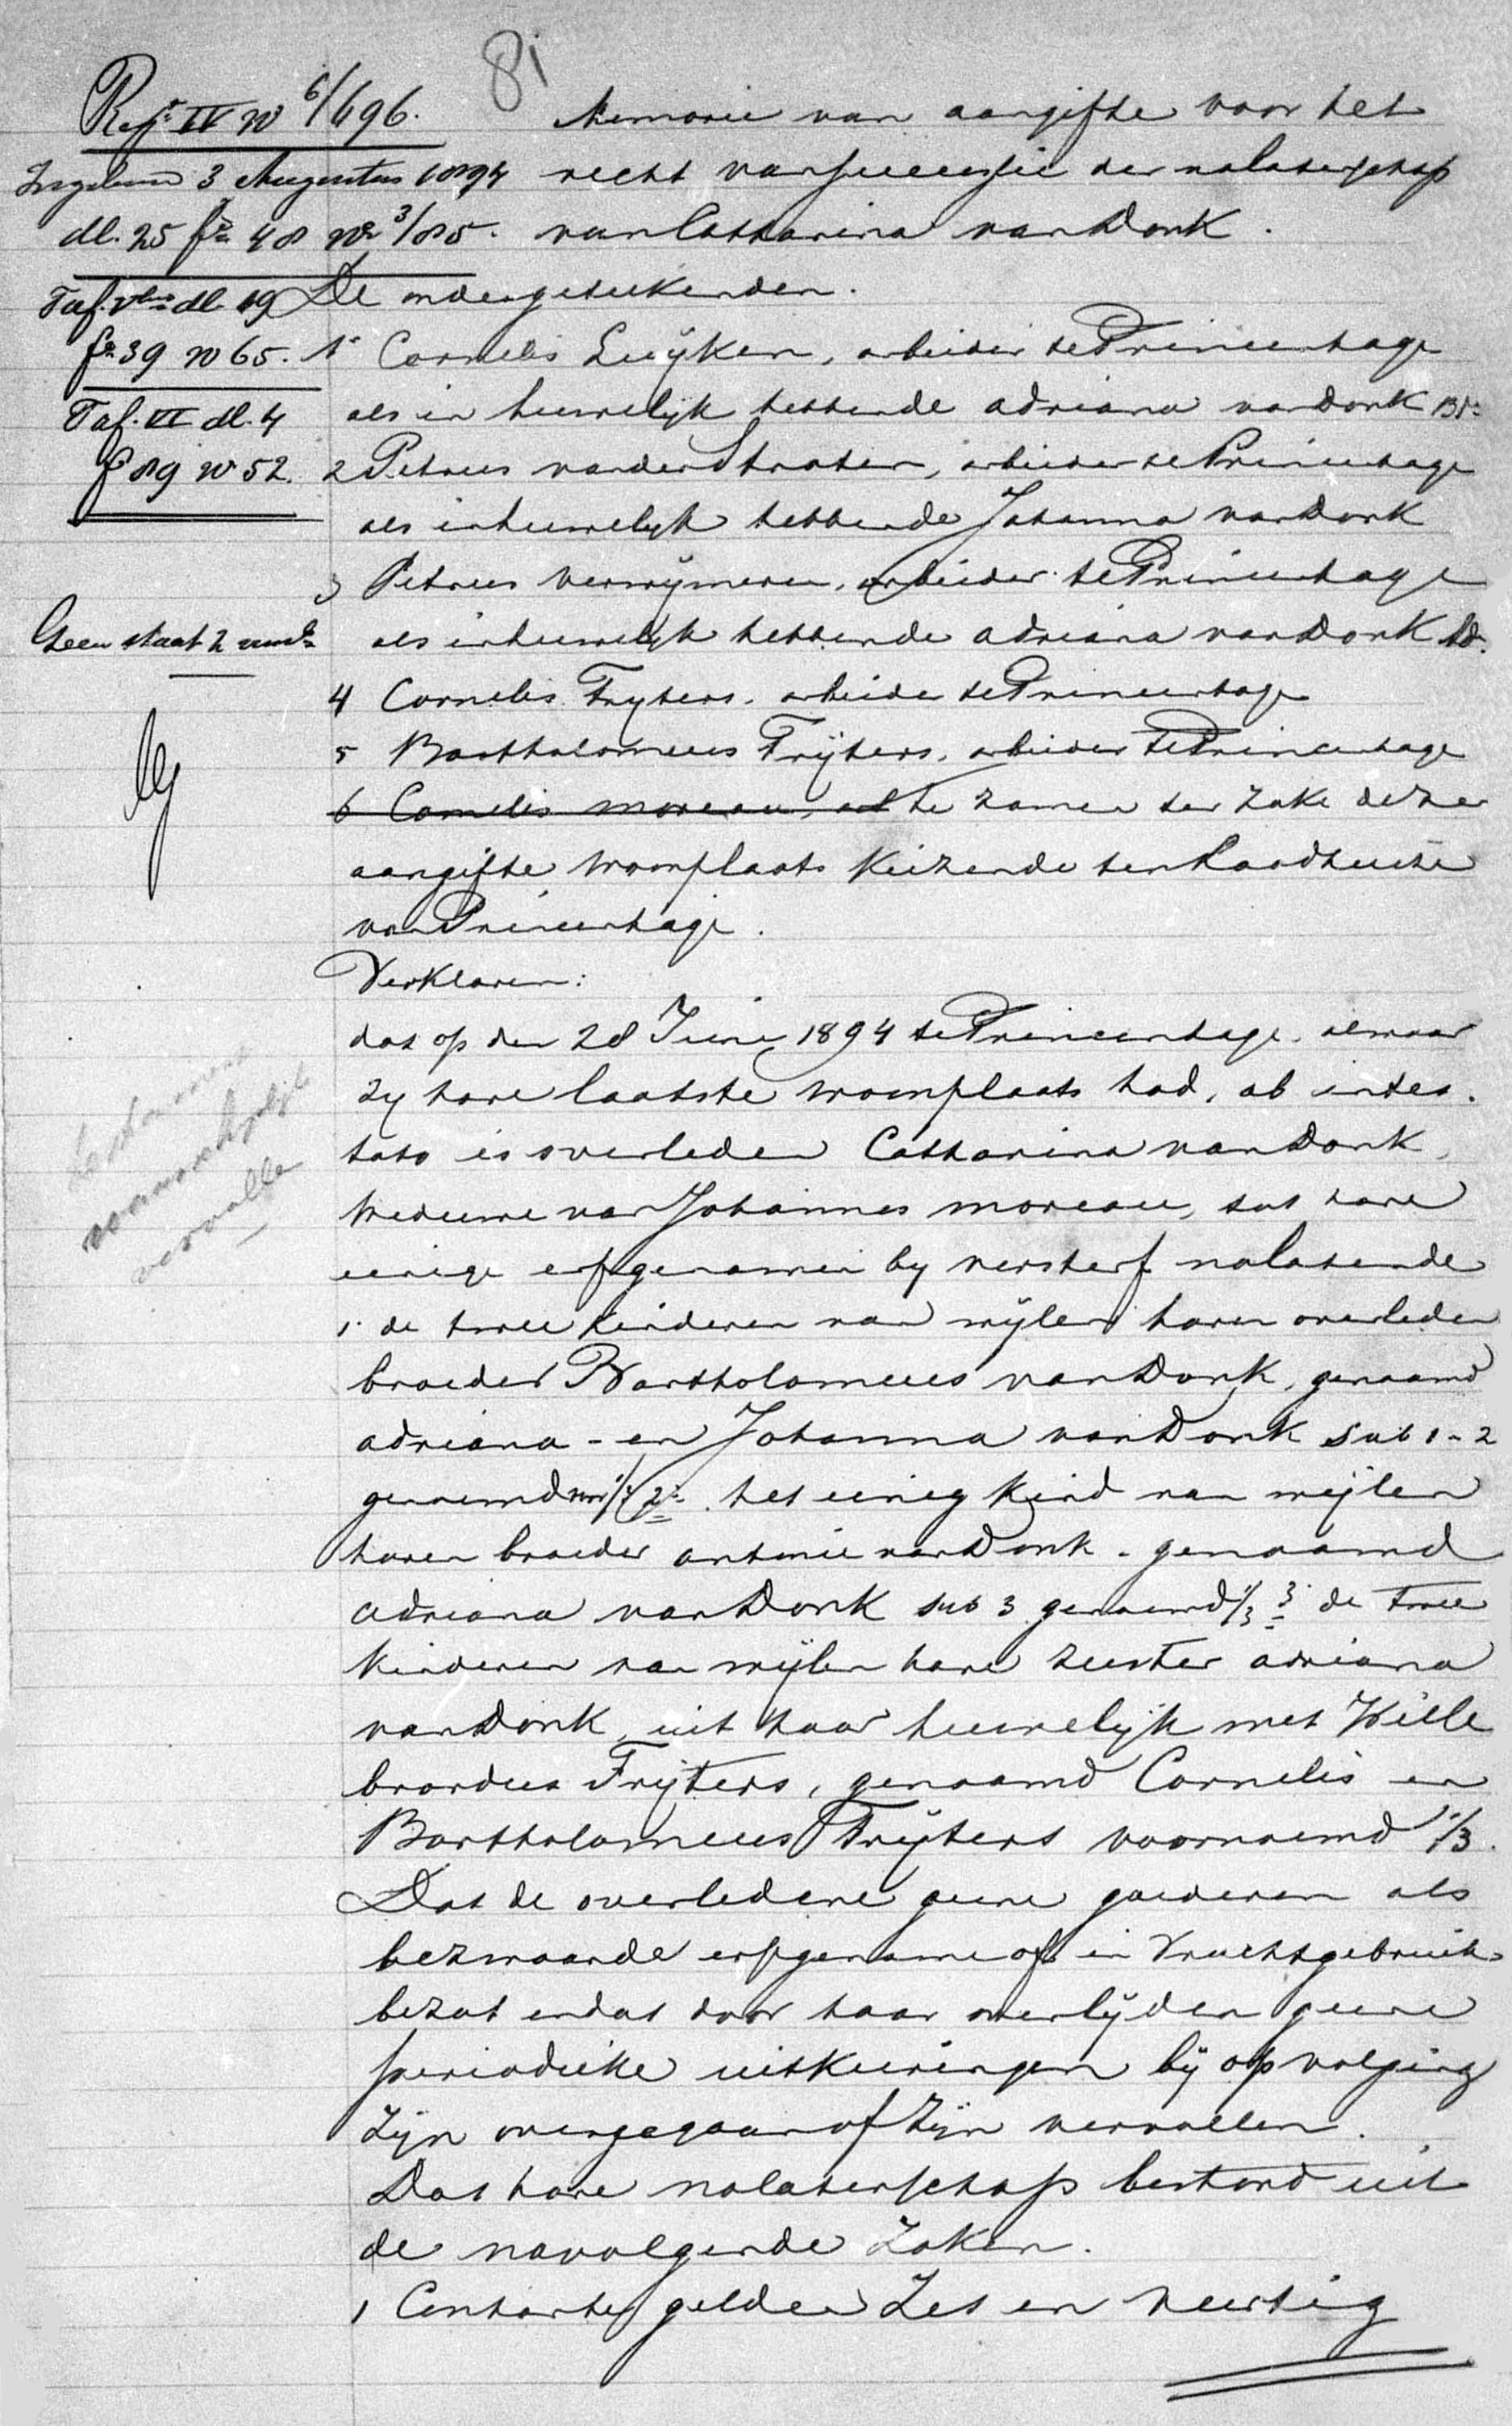 81
Reg. IV No 6/696.
3 Augustus 1894
dl. 25 fo. 48 No 3/85.
Taf. dl. 19
fo. 39 No 65.
Taf. VI dl. 4
fo 89 No 52.
Geen staat 2
Memorie van aangifte voor het
recht van successie der nalatenschap
van Catharina van Donk.
De ondergeteekenden.
1o Cornelis Luijken, arbeider te Princenhage
als in huwelijk hebbende Adriana van Donk Bd.
2 Petrus van der Straten, arbeider te Princenhage
als in huwelyk hebbende Johanna van Donk
3 Petrus Verwijmeren, arbeider te Princenhage
als in huwelyk hebbende Adriana van Donk Ad.
4 Cornelis Fryters. arbeider te Princenhage
5 Bartholomeus Frijters, arbeider te Princenhage
6 Cornelis Moreau, te zamen ter zake dezer
aangifte woonplaats kiezende ten Raadhuize
van Princenhage.
Verklaren:
dat op den 28 Juni 1894 te Princenhage, alwaar
zy hare laatste woonplaats had, ab intes.
tato is overleden Catharina van Donk,
Weduwe van Johannes Moreau, tot hare
eenige erfgenamen by versterf nalatende
1. de twee kinderen van wijlen haren overleden
broeder Bartholomeus van Donk, genaamd
Adriana - en Johanna van Donk sub 1 - 2
genoemd 2o. het eenig kind van wijlen
haren broeder Antonie van Donk. genaamd
Adriana van Donk sub 3 genoemd 1/3 3o de twee
kinderen van wijlen hare zuster Adriana
van Donk, uit haar huwelijk met Wille
brordus Frijters, genaamd Cornelis en
Bartholomeus Frijters voornoemd 1/3.
Dat de overledene geene goederen als
bezwaarde erfgename of in Vruchtgebruik
bezat en dat door haar overlijden geene
periodieke uitkeeringen bij opvolging
zijn overgegaan of zijn vervallen.
Dat hare nalatenschap bestond uit
de navolgende Zaken.
1 Contante gelden Zes en veertig